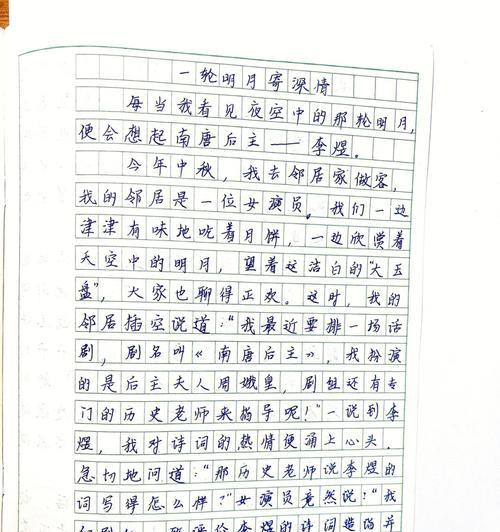 一轮明月寄深情
每当我看见夜空中的那轮明月,
便会想起南唐后主——李煜。
今年中秋,我去邻居家做客,
我的邻居是一位女演员。我们一边
津津有味地吃着月饼,一边欣赏着
天空中的明月,望着这洁白的“大玉
盘”,大家也聊得正欢。这时,我的
邻居插空说道:“我最近要排一场话
剧,剧名叫《南唐后主》,我扮演
的是后主夫人周娥皇,剧组还有专
门的历史老师来指导呢!”一说到李
煜,我对诗词的热情便涌上心头.
急切地问道:“那历史老师说李煜的
词写得怎么样?”女演员竟然说:“我